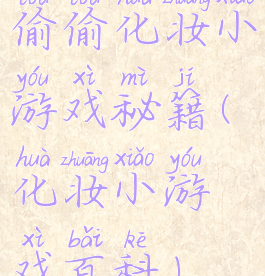 tōu tōu huà zhuāng xiǎo
偷偷化妆小
yóu xì mì jí
游戏秘籍(
huà zhuāng xiǎo yóu
化妆小游
xì bǎi kē
戏百科)